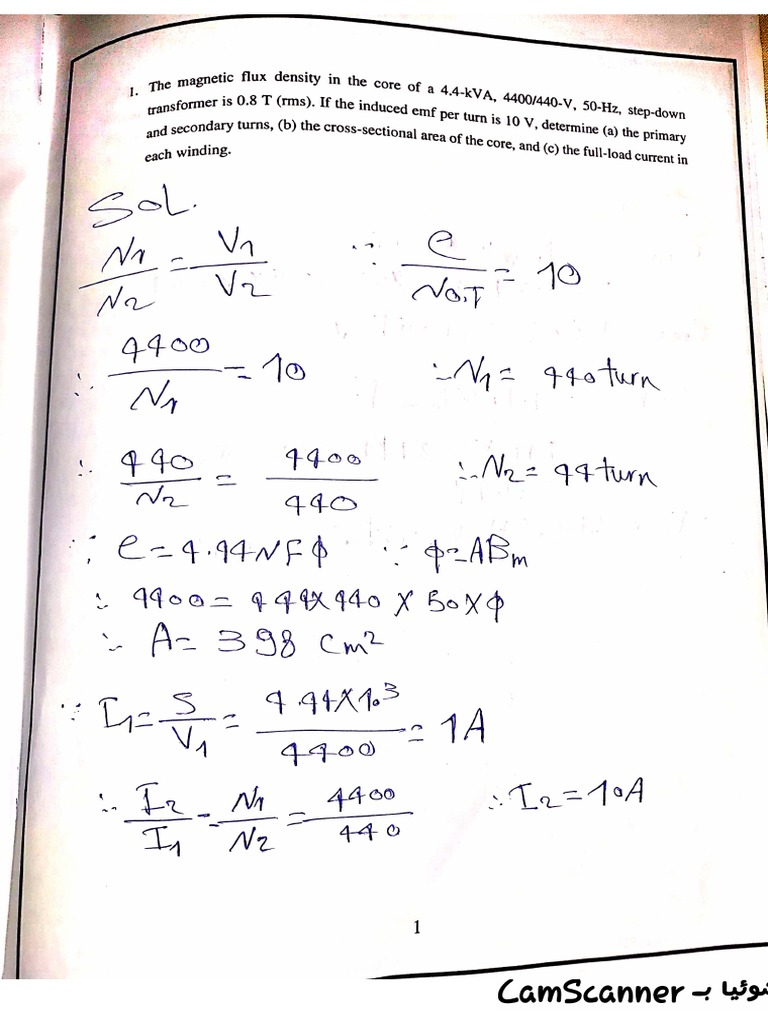 1. The magnetic flux density in the core of a 4.4-kVA, 4400/440-V, 50-Hz, step-down
transformer is 0.8 T (rms). If the induced emf per turn is 10 V, determine (a) the primary
and secondary turns, (b) the cross-sectional area of the core, and (c) the full-load current in
each winding.
SoL.
N1/N2 = V1/V2 ∵ e/No.T = 10
∴ 4400/N1 = 10 ∴ N1 = 440 turn
∴ 440/N2 = 4400/440 ∴ N2 = 44 turn
∵ e = 4.44 N F ϕ ∵ ϕ = ABm
∴ 4400 = 444 × 440 × 50 × ϕ
∴ A = 398 cm²
∵ I1 = S/V1 = 4.44×10³/4400 = 1A
∴ I2/I1 = N1/N2 = 4400/440 ∴ I2 = 10A
1
CamScanner بـ